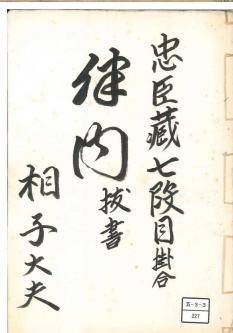 忠臣藏七段目掛合
伴内拔書
相子大夫
五-3-3
227